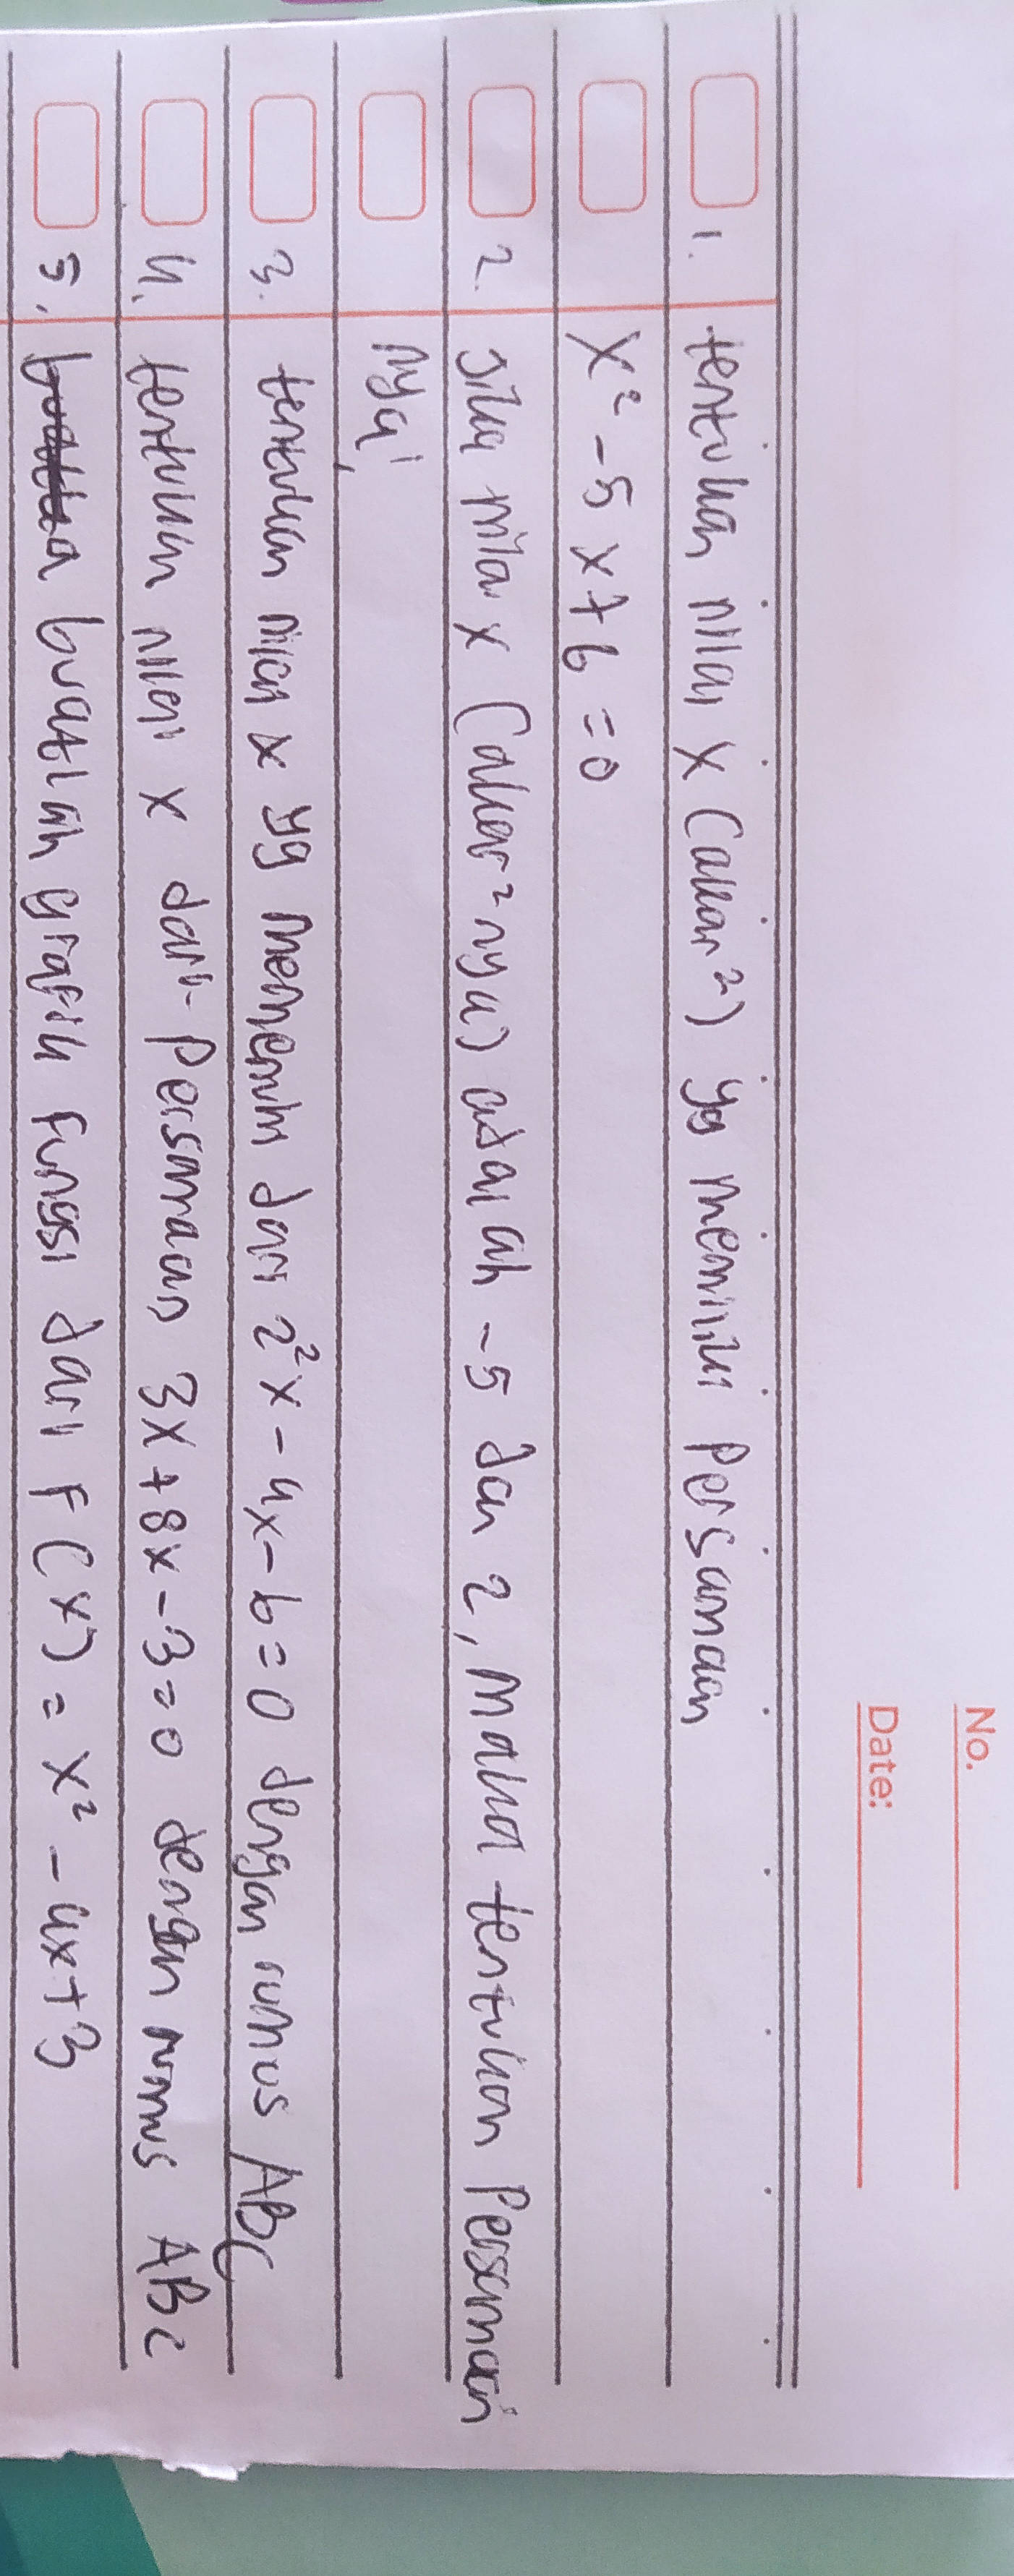 No.
Date:
1. tentukan nilai x (akar²) yg memiliki Persamaan
x² - 5x + 6 = 0
2. Jika nila x (akar²nya) adalah -5 dan 2, maka tentukan Persamaan
nya!
3. tentukan nilai x yg memenuhi dari 2²x - 4x - 6 = 0 dengan rumus ABC
4. tentukan nilai x dari Persamaan 3x + 8x - 3 = 0 dengan rumus ABC
5. buatlah grafik fungsi dari F(x) = x² - 4x + 3